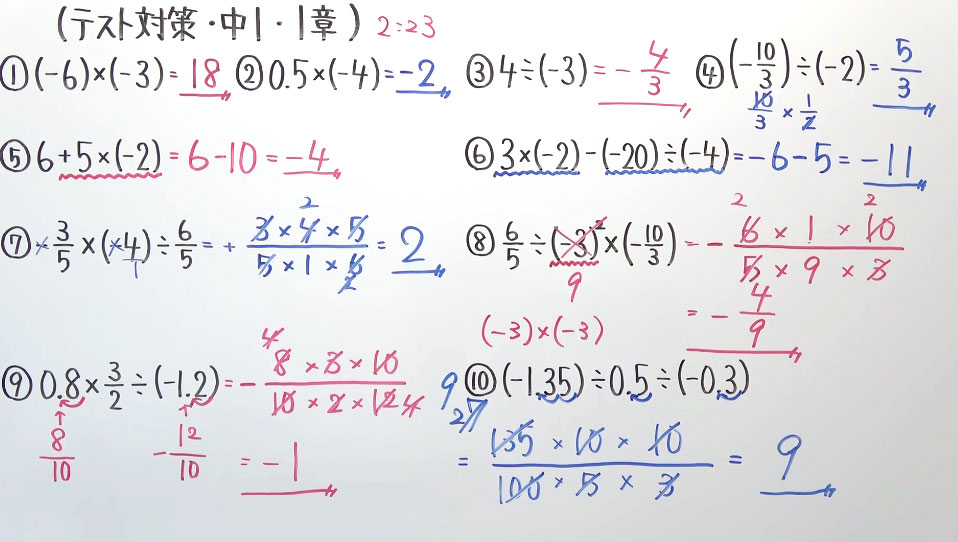 (テスト対策・中1・1章) 2:23
①(-6)×(-3)=18 ②0.5×(-4)=-2 ③4÷(-3)=-4/3 ④(-10/3)÷(-2)=5/3
10/3×1/2
⑤6+5×(-2)=6-10=-4 ⑥3×(-2)-(-20)÷(-4)=-6-5=-11
⑦-3/5×(-4)÷6/5=+3×4×5/5×1×6=2 ⑧6/5÷(-3)²×(-10/3)=-6×1×10/5×9×3
1 2 2 9 2 2
(-3)×(-3) =-4/9
⑨0.8×3/2÷(-1.2)=-8×3×10/10×2×12 ⑩(-1.35)÷0.5÷(-0.3)
4 4 9 27
8/10 -12/10 =-1 =135×10×10/100×5×3=9